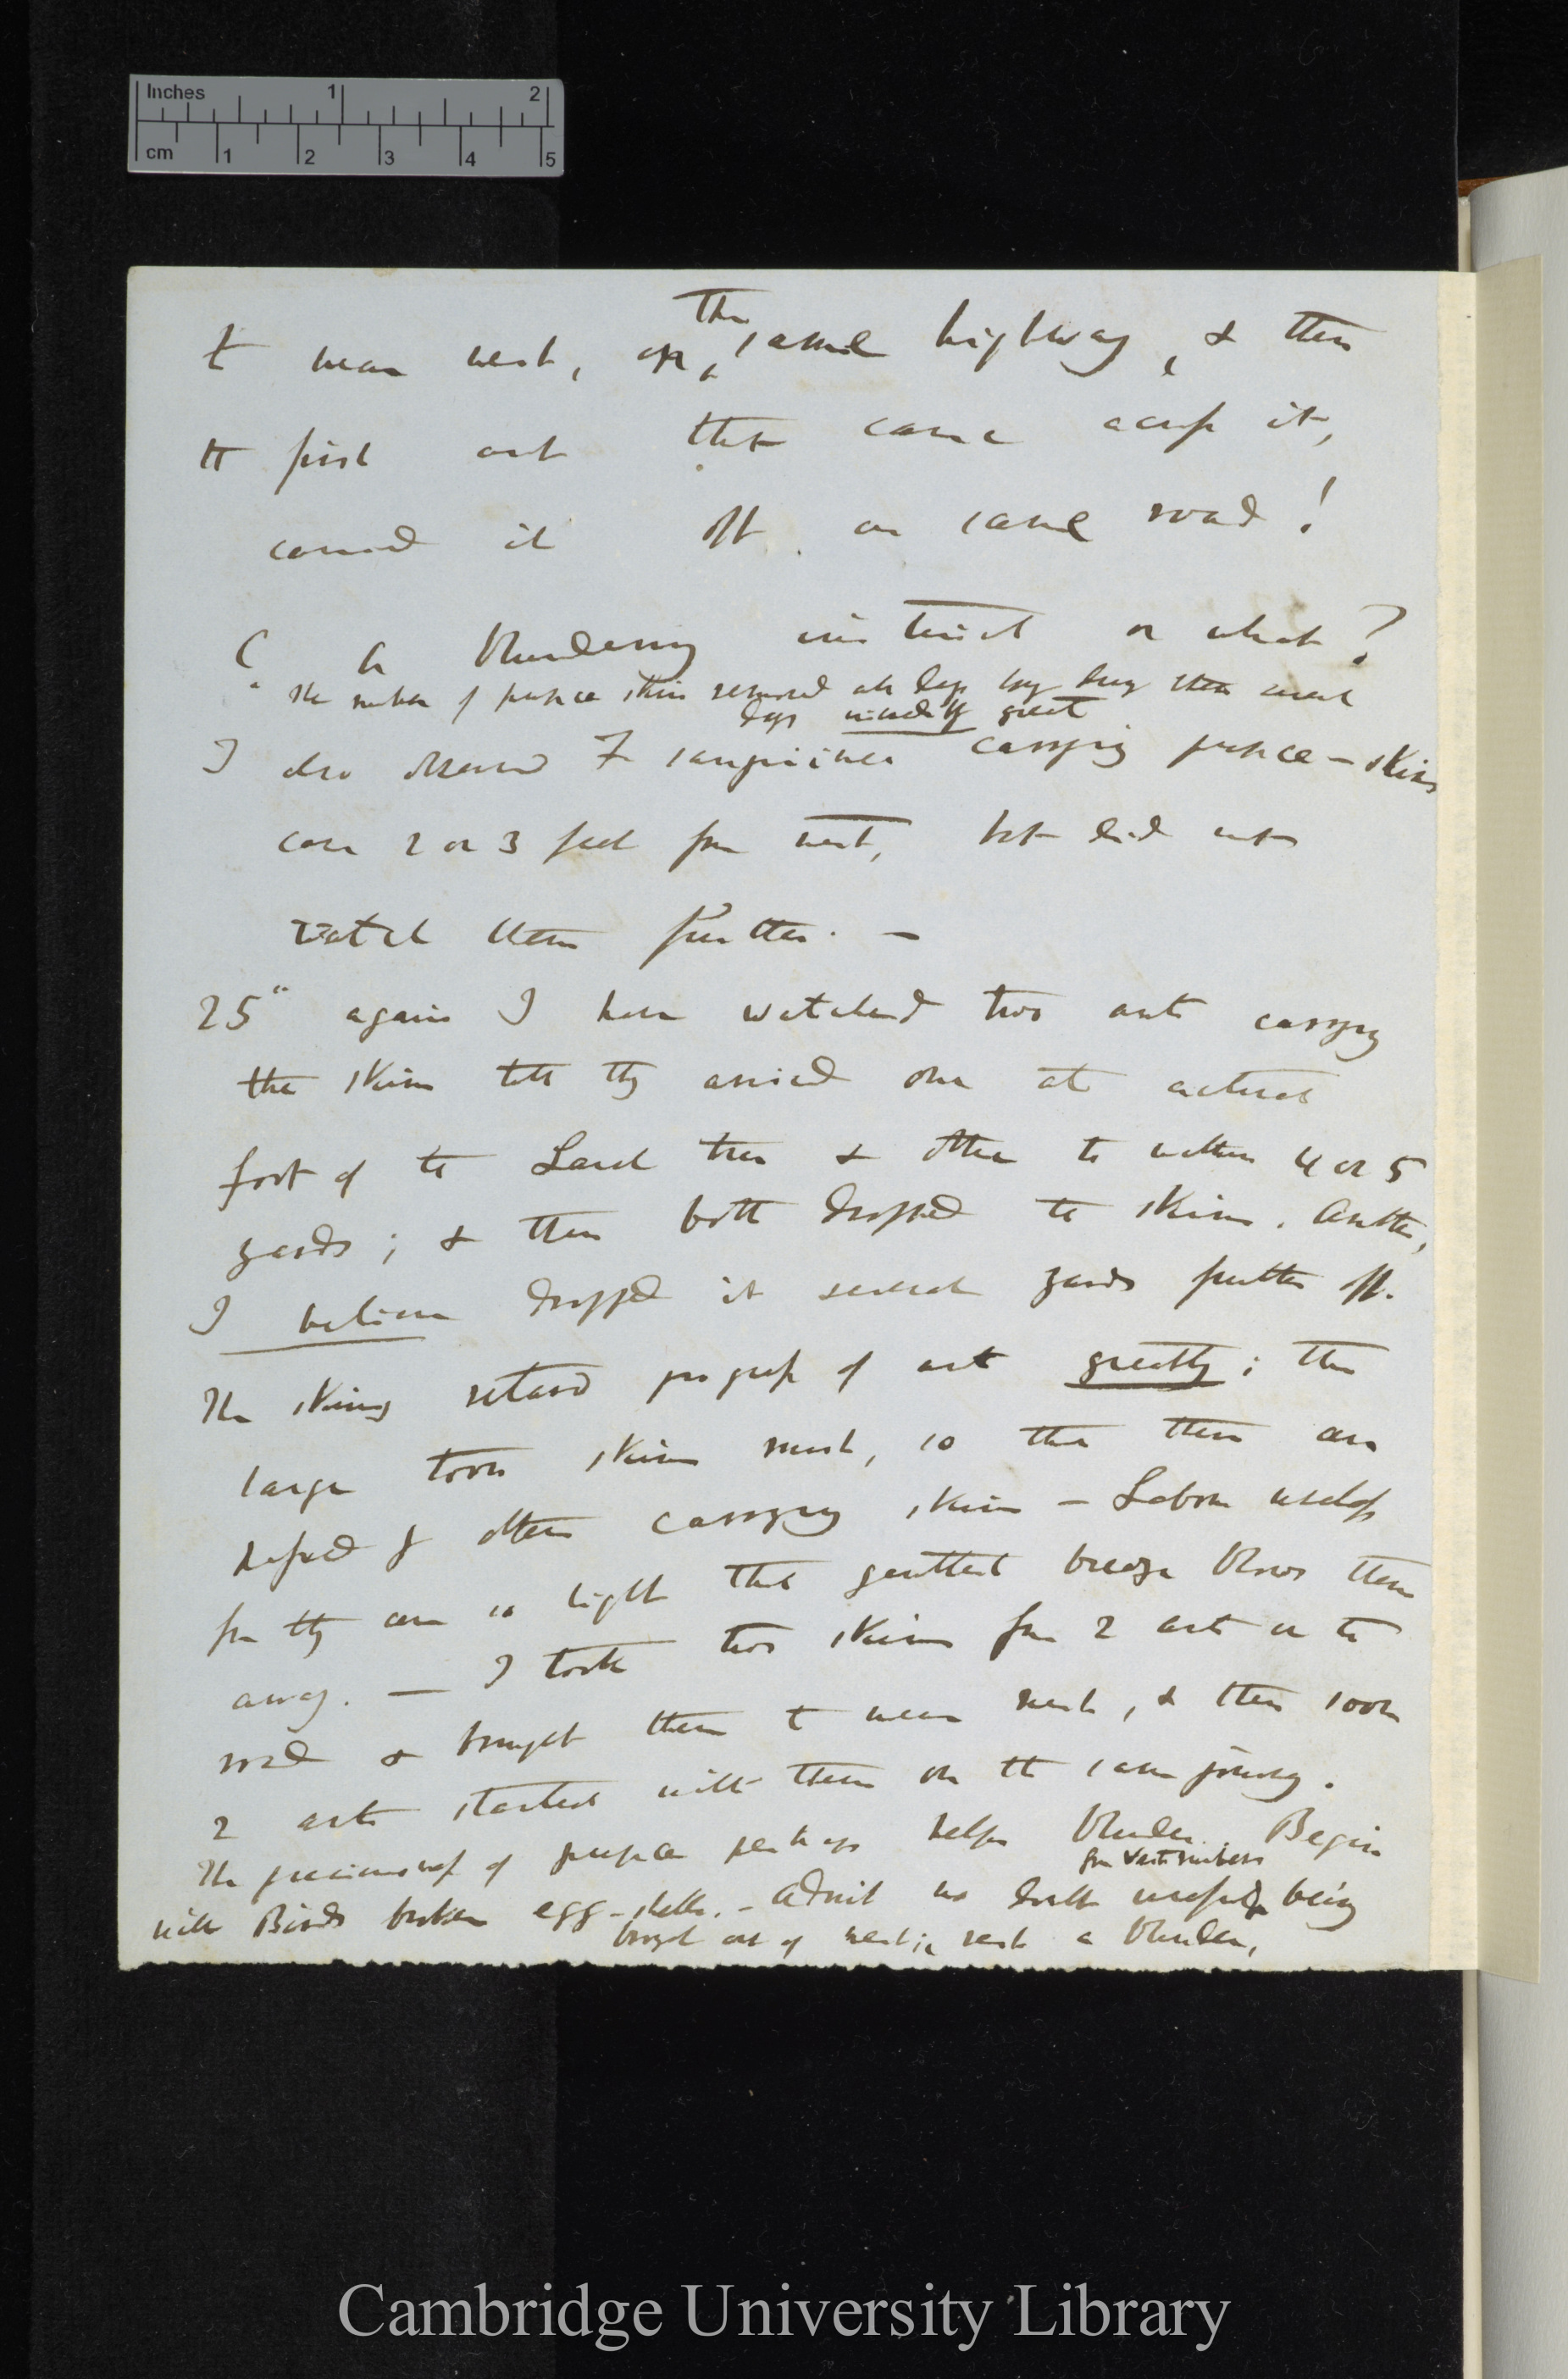 Inches 1 2
cm 1 2 3 4 5
to near nest, on the same highway, & then
the first ant that came across it,
carried it off on same road!
Is a blundering instinct or what?
The number of pupæ skins removed all days long during these several
days incredibly great
I also observed F. sanguinea carrying pupæ-skins
some 2 or 3 feet from nest, but did not
watch them further. —
25th again I have watched two ants carrying
the skins till they arrived one at actual
foot of the Larch tree & other to within 4 or 5
yards; & then both dropped the skins. Another,
I believe dropped it several yards further off.
The skins retard progress of ant greatly; the
large torn skins most, so that there are
of others carrying skins — Labour useless
for they are so light that gentlest breeze blows them
away. — I took two skins from 2 ants on the
road & brought them to near nest, & then soon
2 ants started with them on the same journey.
The preciousness of pupæ perhaps helps blunder. Begin
from vast numbers
with Birds broken egg-shells. — Admit no doubt useful being
brought out of nest; rest a blunder,
Cambridge University Library